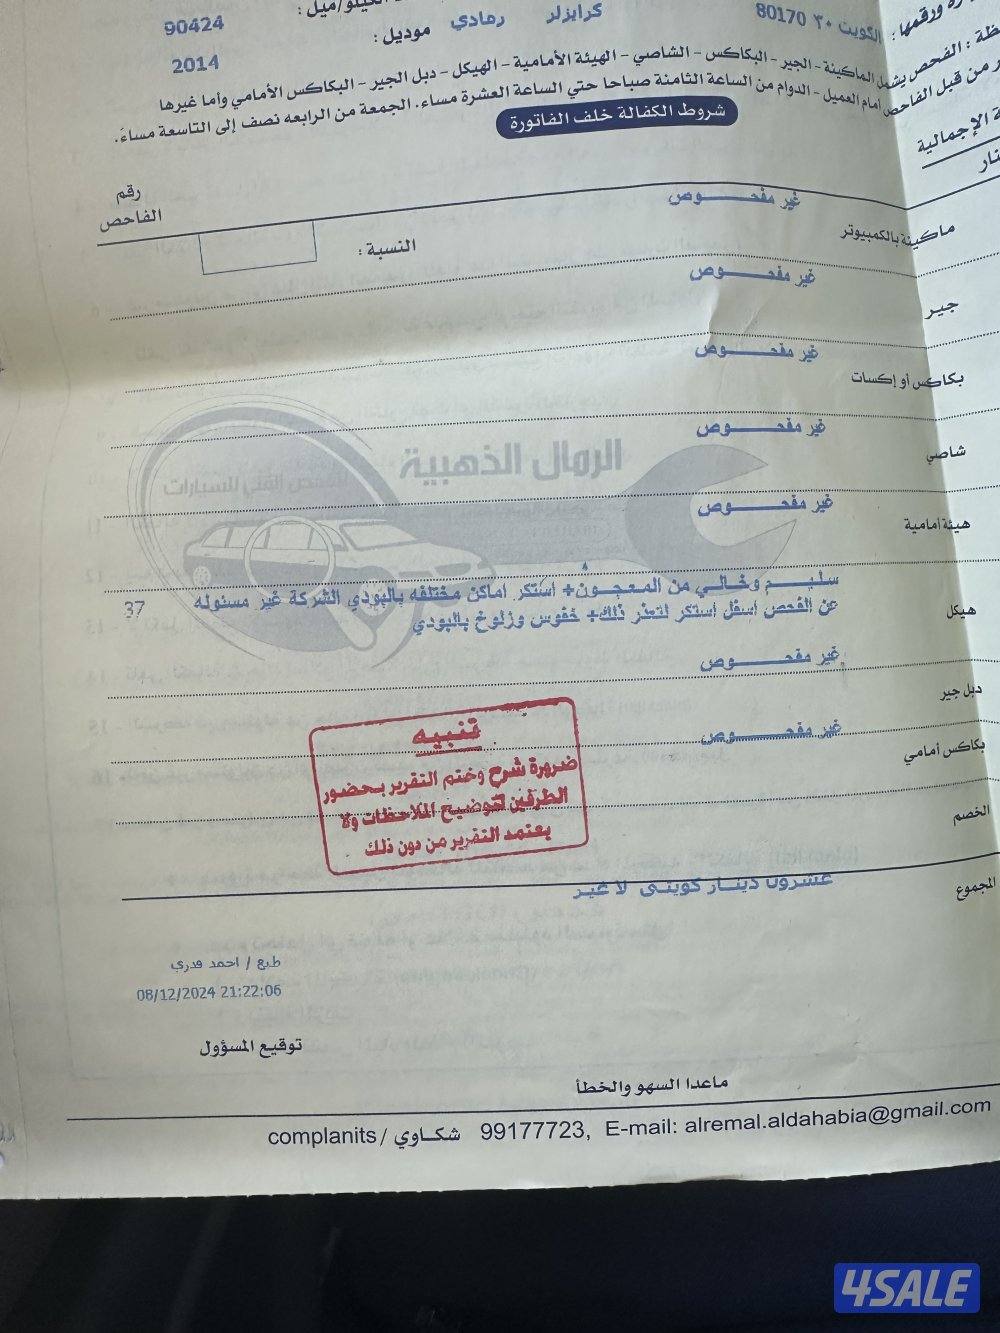 الكيلو/ميل : 90424
الكويت ٣٠ 80170 كرايزلر رمادي موديل : 2014
الفحص يشمل الماكينة - الجير - البكاكس - الشاصي - الهيئة الأمامية - الهيكل - دبل الجير - البكاكس الأمامي وأما غيرها
من قبل الفاحص أمام العميل - الدوام من الساعة الثامنة صباحا حتي الساعة العشرة مساء. الجمعة من الرابعه نصف إلى التاسعة مساءً.
شروط الكفالة خلف الفاتورة
الإجمالية
رقم
الفاحص
ماكينة بالكمبيوتر غير مفحـــوص
النسبة :
جير غير مفحـــوص
بكاكس أو إكسات غير مفحـــوص
شاصي غير مفحـــوص
الرمال الذهبية
الفحص الفني للسيارات
هيئة أمامية غير مفحـــوص
هيكل سليـــم وخـالـي من المـعجـــون+ استكر اماكن مختلفه بالبودي الشركة غير مسئوله 37
عن الفحص اسفل استكر لتعذر ذلك+ خفوس وزلوخ بالبودي
دبل جير غير مفحـــوص
بكاكس أمامي غير مفحـــوص
تنبيه
ضرورة شرح وختم التقرير بـحضور
الطرفين لتوضيح الملاحظات ولا
يعتمد التقرير من دون ذلك
الخصم
المجموع عشرون دينـار كويتـى لا غير
طبع / احمد قدري
08/12/2024 21:22:06
توقيع المسؤول
ماعدا السهو والخطأ
complanits / شكـاوي 99177723, E-mail: alremal.aldahabia@gmail.com
4SALE